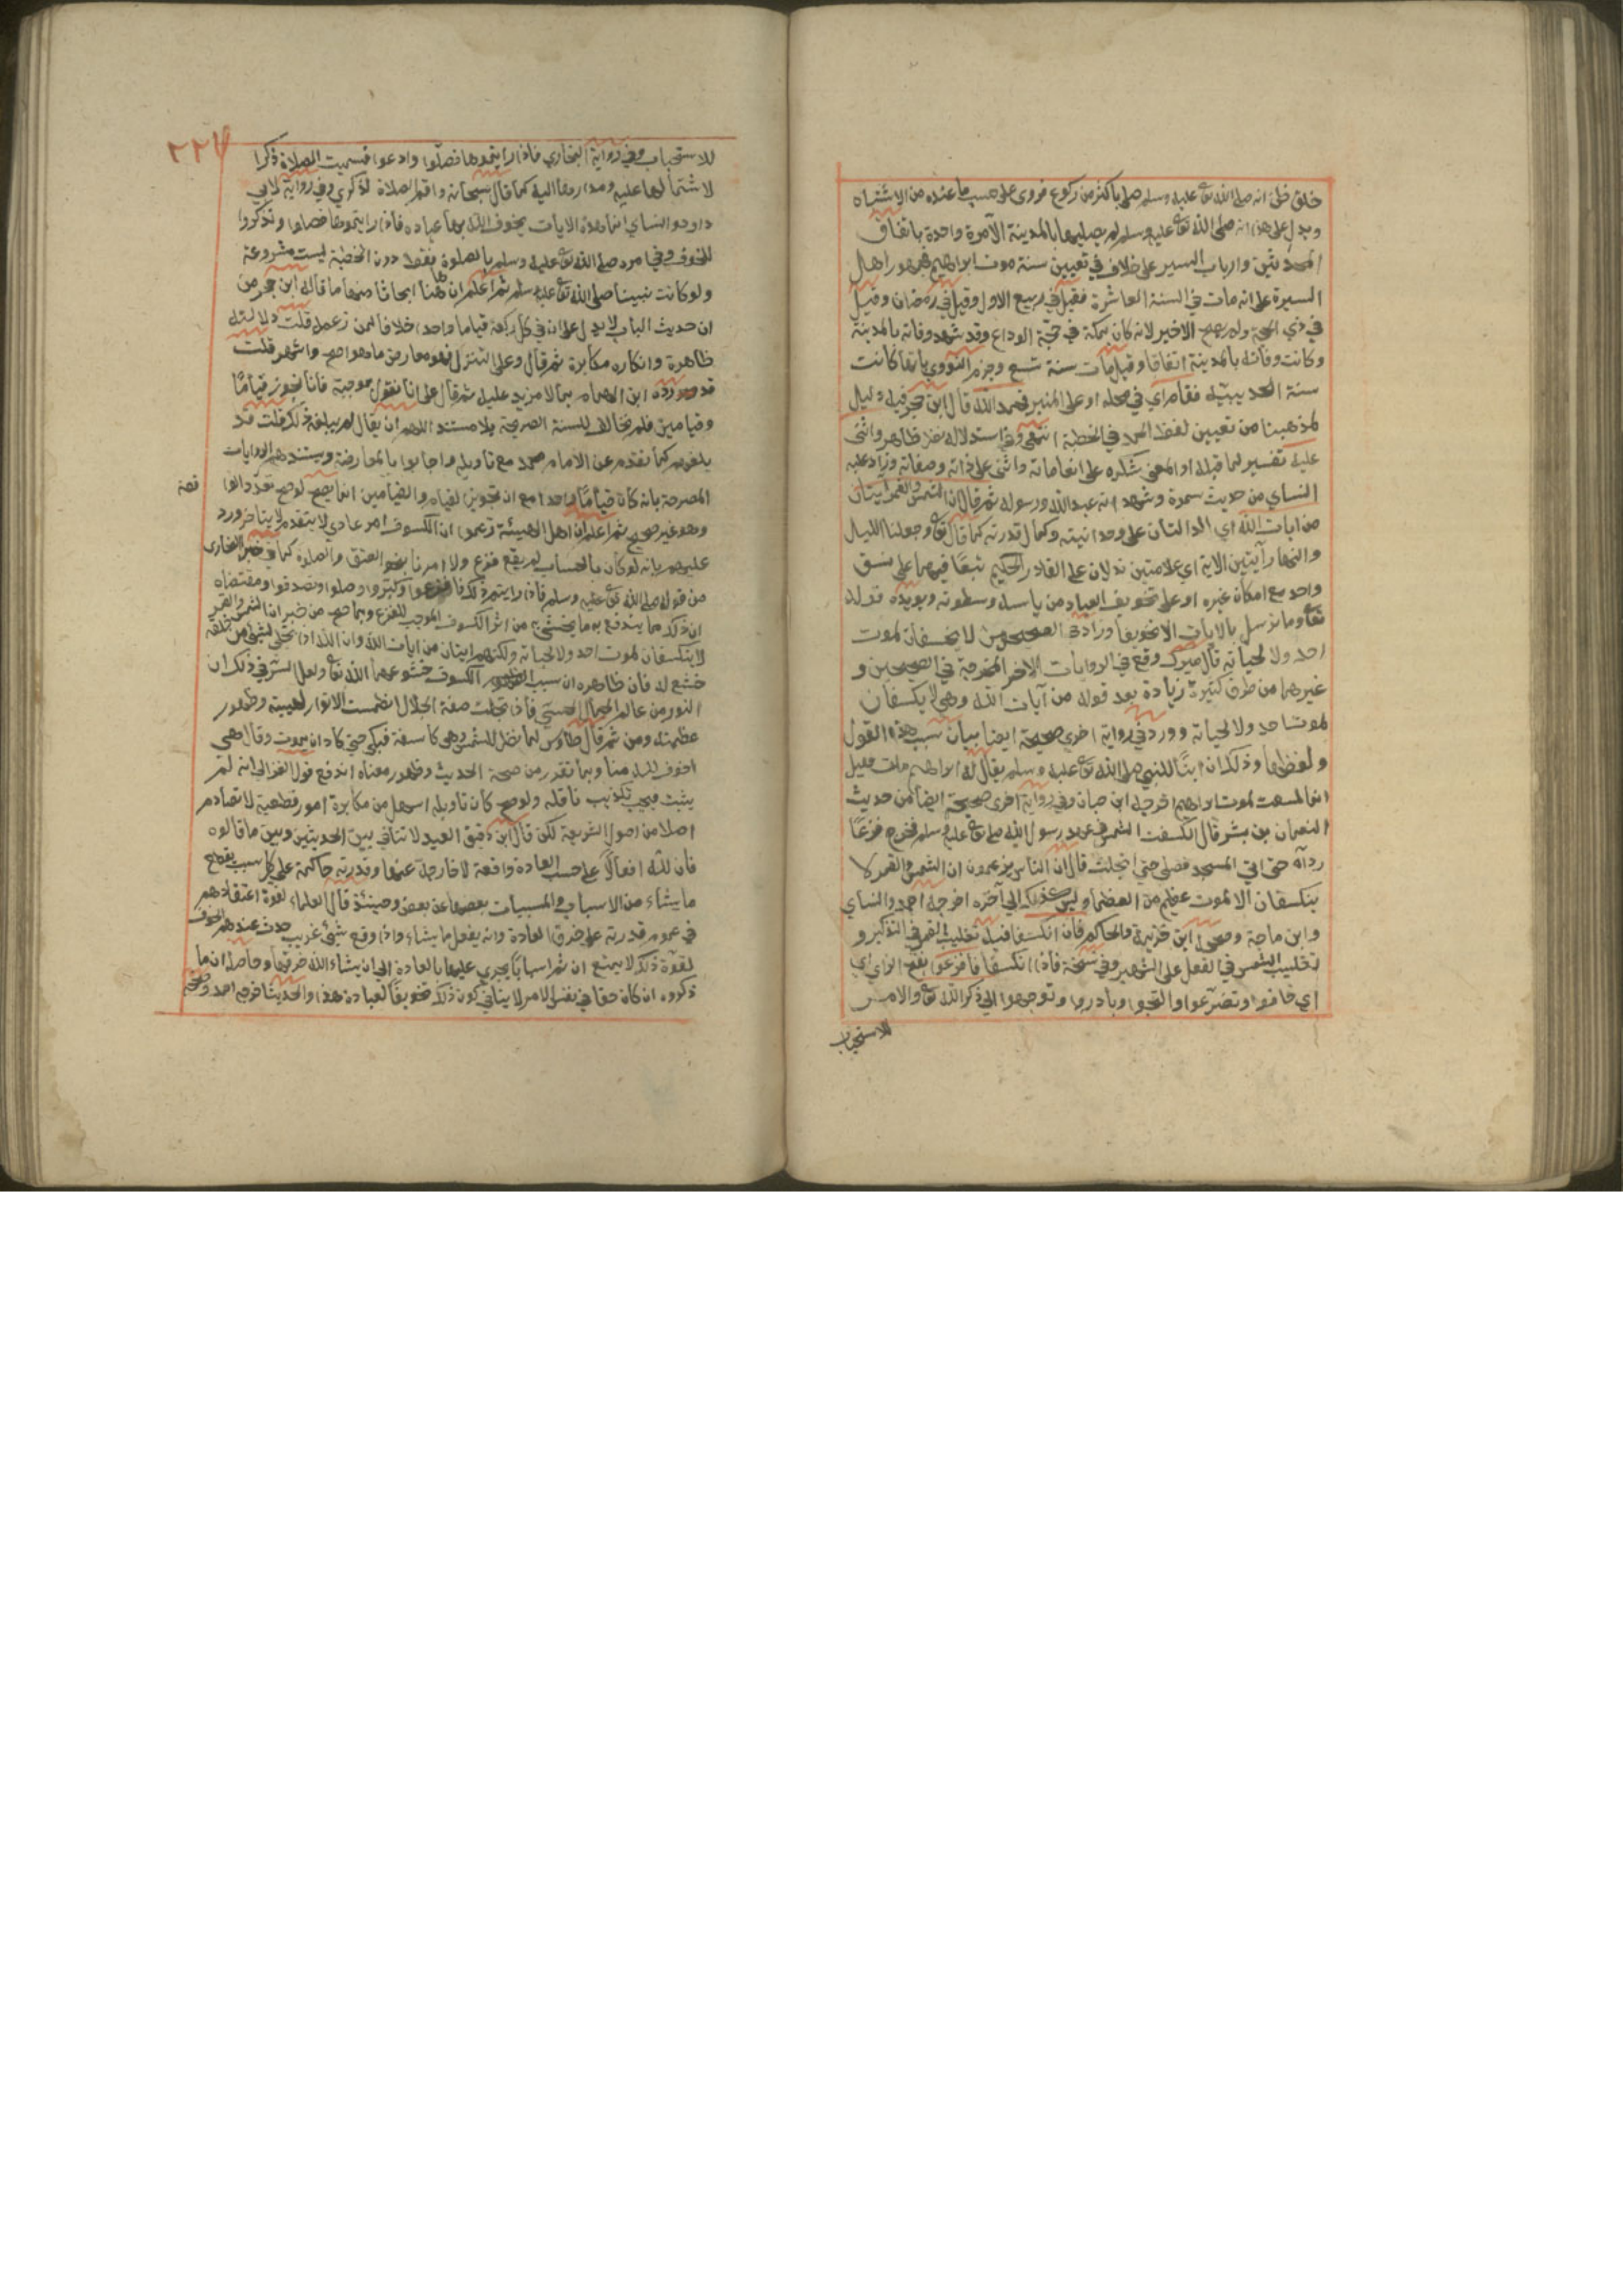 خلق ظن انه صلى الله تع عليه وسلم صلى باكثر من ركوع فروى على حسب ما عنده من الاشتباه
ويدل على هذا انه صلى الله تع عليه وسلم لم يصليها بالمدينة الا مرة واحدة باتفاق
المحدثين وارباب السير على خلاف في تعيين سنة موت ابراهيم فجمهور اهل
السيرة على انه مات في السنة العاشرة فقيل في ربيع الاول وقيل في رمضان وقيل
في ذي الحجة ولم يصح الاخير لانه كان بمكة في حجة الوداع وقد شهد وفاته بالمدينة
وكانت وفاته بالمدينة اتفاقا وقيل مات سنة تسع وجزم النووي بانها كانت
سنة الحديبية فقام اي في محله او على المنبر فحمد الله قال ابن حجر فيه دليل
لمذهبنا من تعيين لفظ الحمد في الخطبة انتهى وفي استدلاله نظر ظاهر واثنى
عليه تفسير لما قبله او المعنى شكره على انعاماته واثنى على ذاته وصفاته وزاد عليه
النساي من حديث سمرة وشهد انه عبد الله ورسوله ثم قال ان الشمس والقمر ايتان
من ايات الله اي الدالتان على وحدانيته وكمال قدرته كما قال تع وجعلنا الليل
والنهار آيتين الاية اي علامتين تدلان على القادر الحكيم تبعا فيهما على نسق
واحد مع امكان غيره او على تخويف العباد من باسه وسطوته ويويده قوله
تع وما نرسل بالايات الا تخويفا وزاد في الصحيحين لا يخسفان لموت
احد ولا لحياته قال ميرك وقع في الروايات الاخر المخرجة في الصحيحين و
غيرهما من طرق كثيرة زيادة بعد قوله من آيات الله وهي لا يكسفان
لموت احد ولا لحياته وورد في رواية اخرى صحيحة ايضا بيان سبب هذا القول
ولفظها وذلك ان ابنا للنبي صلى الله تع عليه وسلم يقال له ابراهيم مات فقيل
انما كسفت لموت ابراهيم اخرجه ابن حبان وفي رواية اخرى صحيحة ايضا من حديث
النعمان بن بشر قال انكسفت الشمس في عهد رسول الله صلى تع عليه وسلم فخرج فزعا
رداه حتى اتى المسجد فصلى حتى انجلت قال ان الناس يزعمون ان الشمس والقمر لا
ينكسفان الا لموت عظيم من العظما وليس كذلك الى آخره اخرجه احمد والنساي
وابن ماجة وصححه ابن خزيمة والحاكم فان انكسفا فيه تغليب القمر في التذكير و
تغليب الشمس في الفعل على الشهير وفي نسخة فاذا انكسفا فافزعوا بفتح الزاي اي
اي خافوا وتضرعوا والتجوا وبادروا وتوجهوا الى ذكر الله تع والامر
للاستحباب
٢٢٧
للاستحباب وفي رواية البخاري فاذا رايتموها فصلوا وادعوا فسميت الصلاة ذكرا
لاشتمالها عليه ومدارها اليه كما قال سبحانه واقم الصلاة لذكري وفي رواية لابي
داود والنساي انما هذه الايات يخوف الله بها عباده فاذا رايتموها فصلوا وتذكروا
للخوف وفي امره صلى الله تع عليه وسلم بالصلوة فقط دون الخطبة ليست مشروعة
ولو كانت نبينا صلى الله تع عليه وسلم ثم اعلم ان ههنا ابحاثا منها ما قاله ابن حجر من
ان حديث الباب لا يدل على ان في كل ركعة قياما واحدا خلافا لمن زعمه قلت دلالته
ظاهرة وانكاره مكابرة ثم قال وعلى التنزل فهو معارض ما هو اصح واشهر قلت
قد رده ابن الهمام بما لا مزيد عليه ثم قال على انا نقول بموجبه فانا نجوز قياما
وقيامين فلم نخالف للسنة الصريحة بلا مستند اللهم ان يقال لم يبلغه ذلك قلت قد
بلغهم كما تقدم عن الامام محمد مع تاويله واجابوا بالمعارضة ويستندهم الروايات
المصرحة بانه كان قياما واحدا مع ان تجويز القيام والقيامين انما يصح لو صح تعدد الوا
قعة
وهو غير صحيح ثم اعلم ان اهل الهيئة زعموا ان الكسوف امر عادي لا يتقدم ولا يتاخر ورد
عليهم بانه لو كان بالحساب لم يقع فزع ولا امرنا بنحو العتق والصلوة كما في خبر البخاري
من قوله صلى الله تع عليه وسلم فاذا رايتم ذلك فافزعوا وكبروا وصلوا وتصدقوا ومقتضاه
ان ذلك مما يندفع به ما يخشى من اثر الكسوف الموجب للفزع وبما صح من خبر ان الشمس والقمر
لا ينكسفان لموت احد ولا لحياته ولكنهم ايتان من ايات الله وان الله اذا تجلى لشي من خلقه
خشع له فان ظاهره ان سبب الكسوف خشوعهما لله تع ولعل السر في ذلك ان
النور من عالم الجمال الحسي فاذا تجلت صفة الجلال انطمست الانوار لهيبته وظهور
عظمته ومن ثم قال طاوس لما نظر للشمس وهي كاسفة فبكى حتى كاد ان يموت وقال هي
اخوف لله منا وبما تقرر من صحة الحديث وظهور معناه اندفع قول الغزالي انه لم
يثبت فيجب تكذيب ناقله ولو صح كان تاويله اسهل من مكابرة امور قطعية لا تصادم
اصلا من اصول الشريعة لكن قال ابن دقيق العيد لا تنافي بين الحديثين وبين ما قالوه
فان لله افعالا على حسب العادة وافعالا خارجة عنها وقدرته حاكمة على كل سبب يقطع
ما يشاء من الاسباب والمسببات بعضها عن بعض وحينئذ قال العلماء لقوة اعتقادهم
في عموم قدرته على خرق العادة وانه يفعل ما يشاء واذا وقع شيئ غريب حدث عندهم الخوف
لقوة ذلك لا يمنع ان ثم اسبابا يجري عليها بالعادة الى ان يشاء الله خرقها وحاصله ان ما
ذكروه ان كان حقا في نفس الامر لا ينافي كون ذلك تخويفا لعباده هذا والحديث اخرجه احمد وصححه